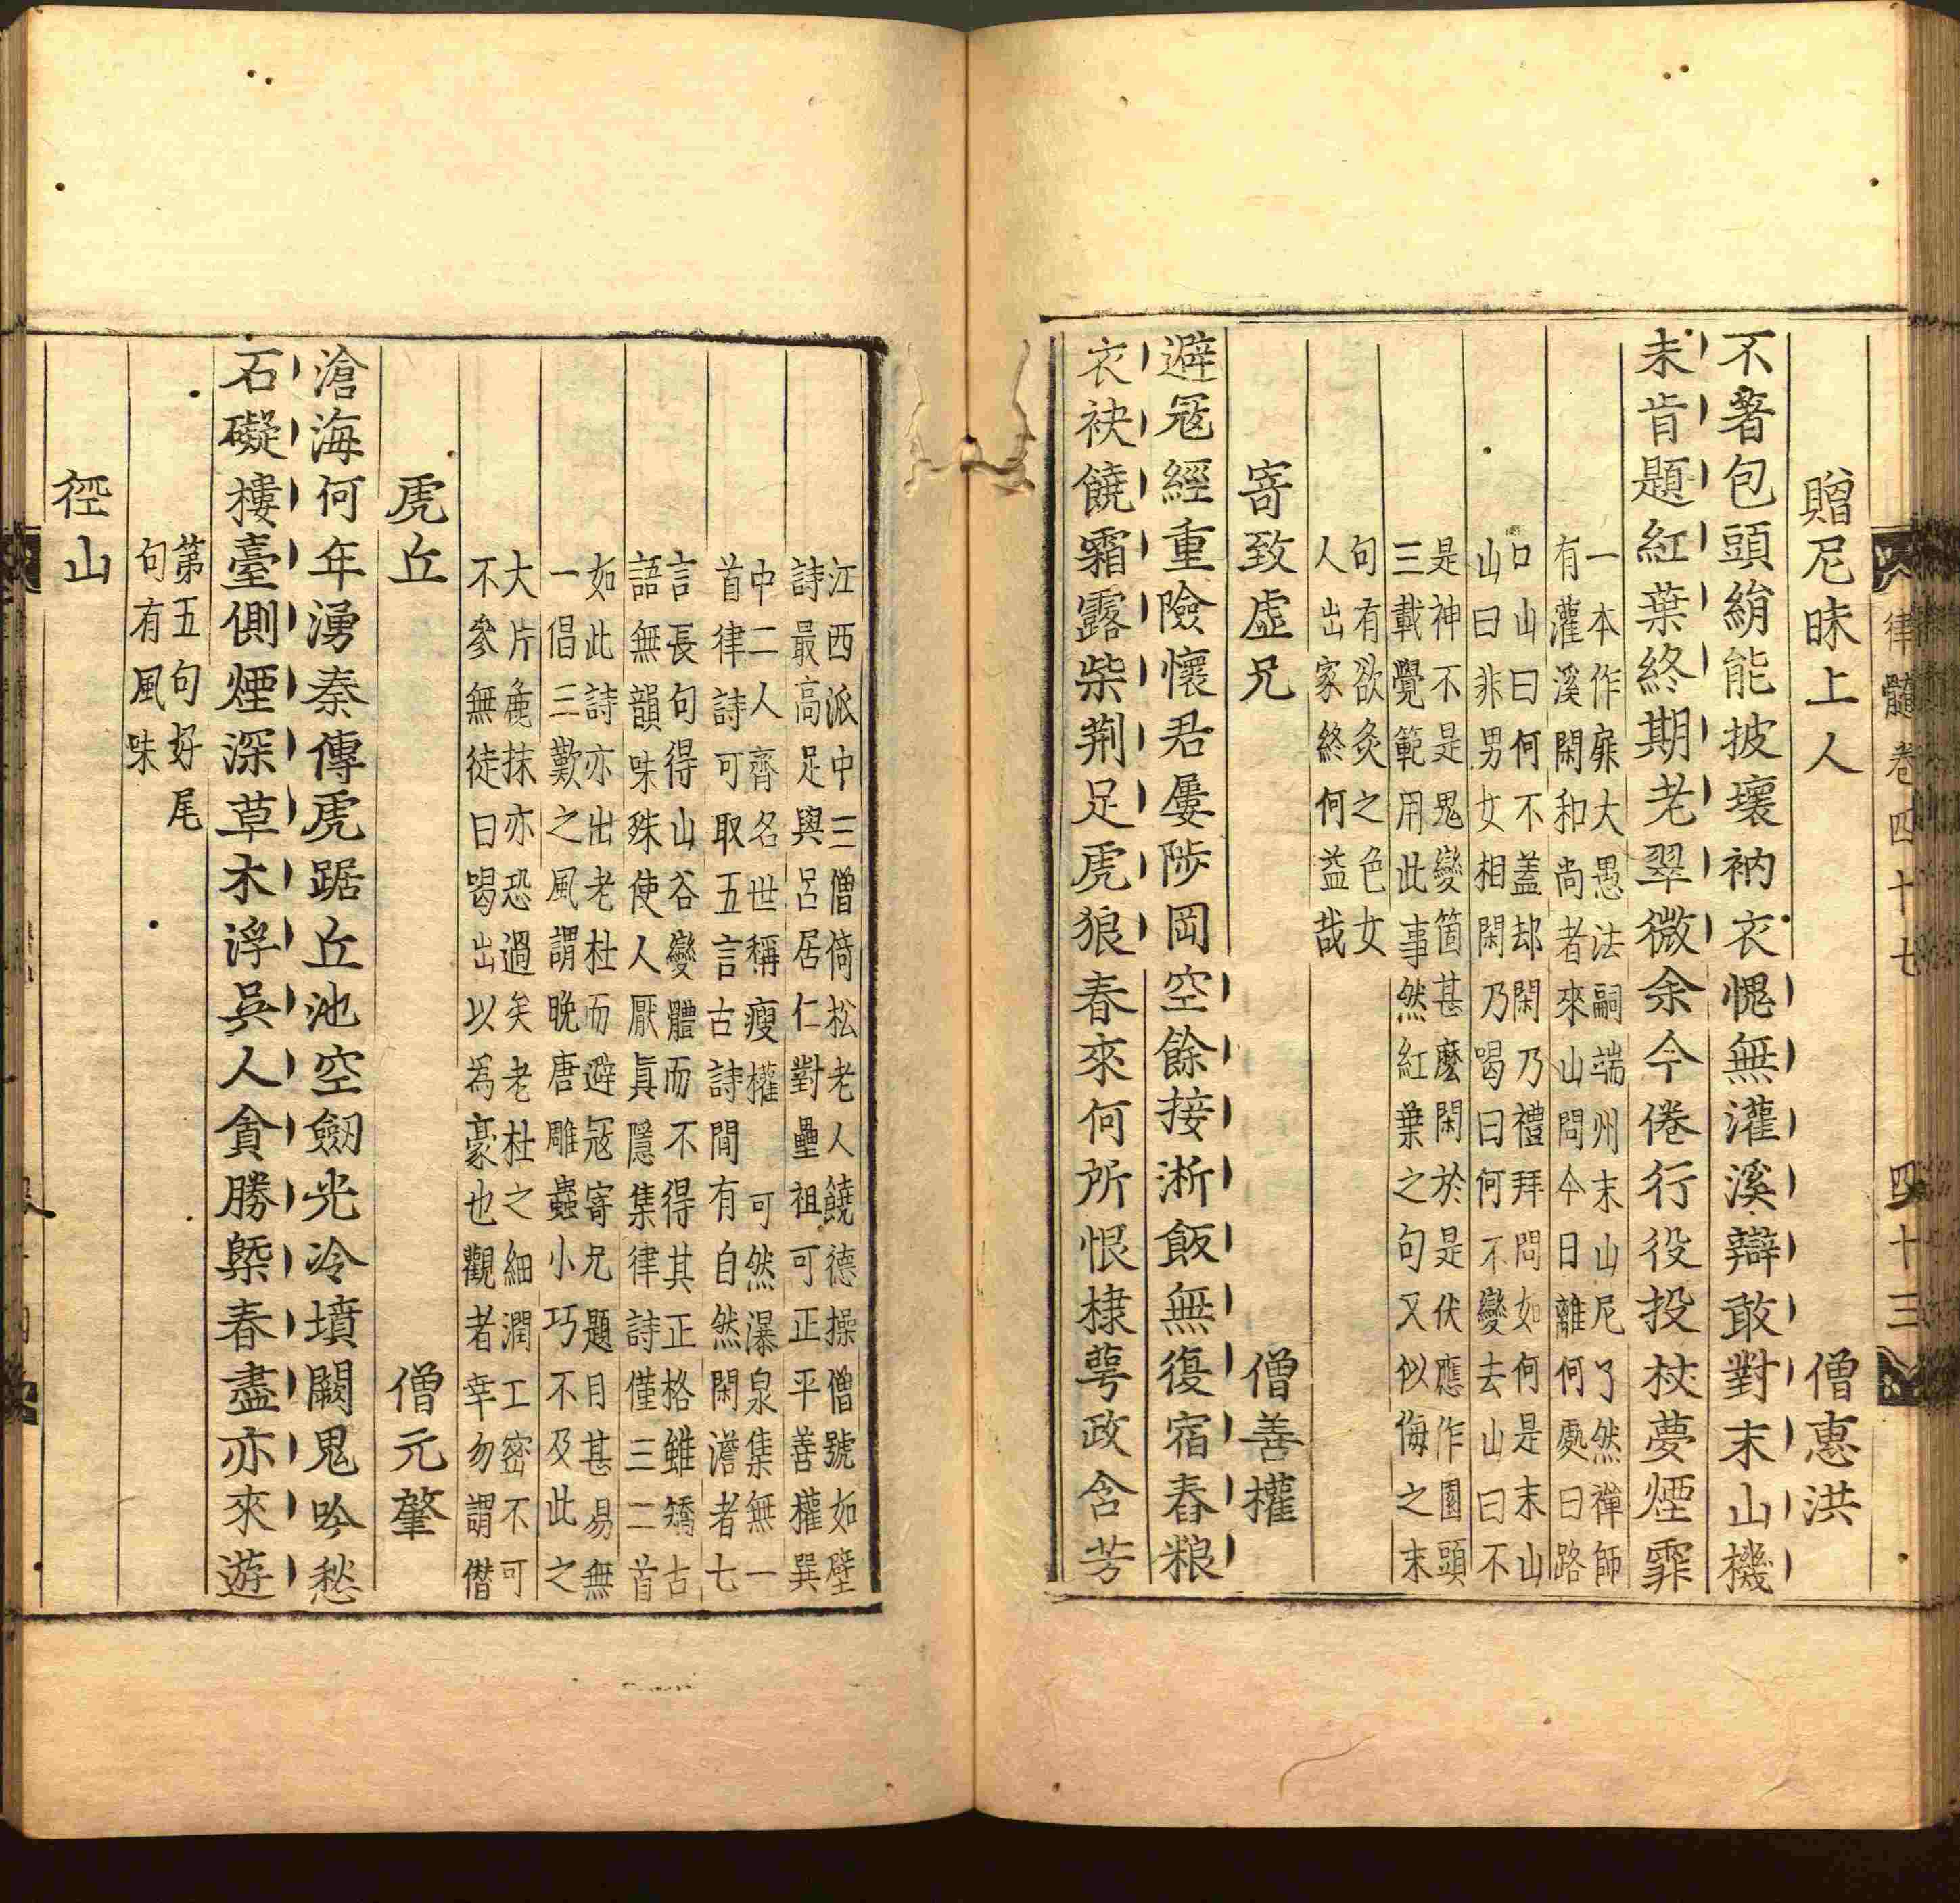 律髓卷四十七　四十三
贈尼昧上人　僧惠洪
不著包頭絹能披壞衲衣愧無灌溪辯敢對末山機
未肯題紅葉終期老翠微余今倦行役投杖夢煙霏
一本作扉大愚法嗣端州末山尼了然禪師
有灌溪閑和尚者來山問今日離何處曰路
口山曰何不蓋却閑乃禮拜問如何是末山
山曰非男女相閑乃喝曰何不變去山曰不
是神不是鬼變箇甚麽閑於是伏應作園頭
三載覺範用此事然紅葉之句又似侮之末
句有欲炙之色女
人出家終何益哉
寄致虛兄　僧善權
避寇經重險懷君屢陟岡空餘接淅飯無復宿舂粮
衣袂饒霜露柴荆足虎狼春來何所恨棣萼政含芳
江西派中三僧倚松老人饒德操僧號如壁
詩最高足與呂居仁對壘祖可正平善權巽
中二人齊名世稱瘦權　可然瀑泉集無一
首律詩可取五言古詩間有自然閑澹者七
言長句得山谷變體而不得其正格雖矯古
語無韻味殊使人厭眞隱集律詩僅三二首
如此詩亦出老杜而避寇寄兄題目甚易無
一倡三歎之風謂晚唐雕蟲小巧不及此之
大片麄抹亦恐過矣老杜之細潤工密不可
不參無徒曰喝出以為豪也觀者幸勿謂僭
虎丘　僧元肇
滄海何年湧秦傳虎踞丘池空劒光冷墳闕鬼吟愁
石礙樓臺側煙深草木浮吳人貪勝槩春盡亦來遊
第五句好尾
句有風味
徑山